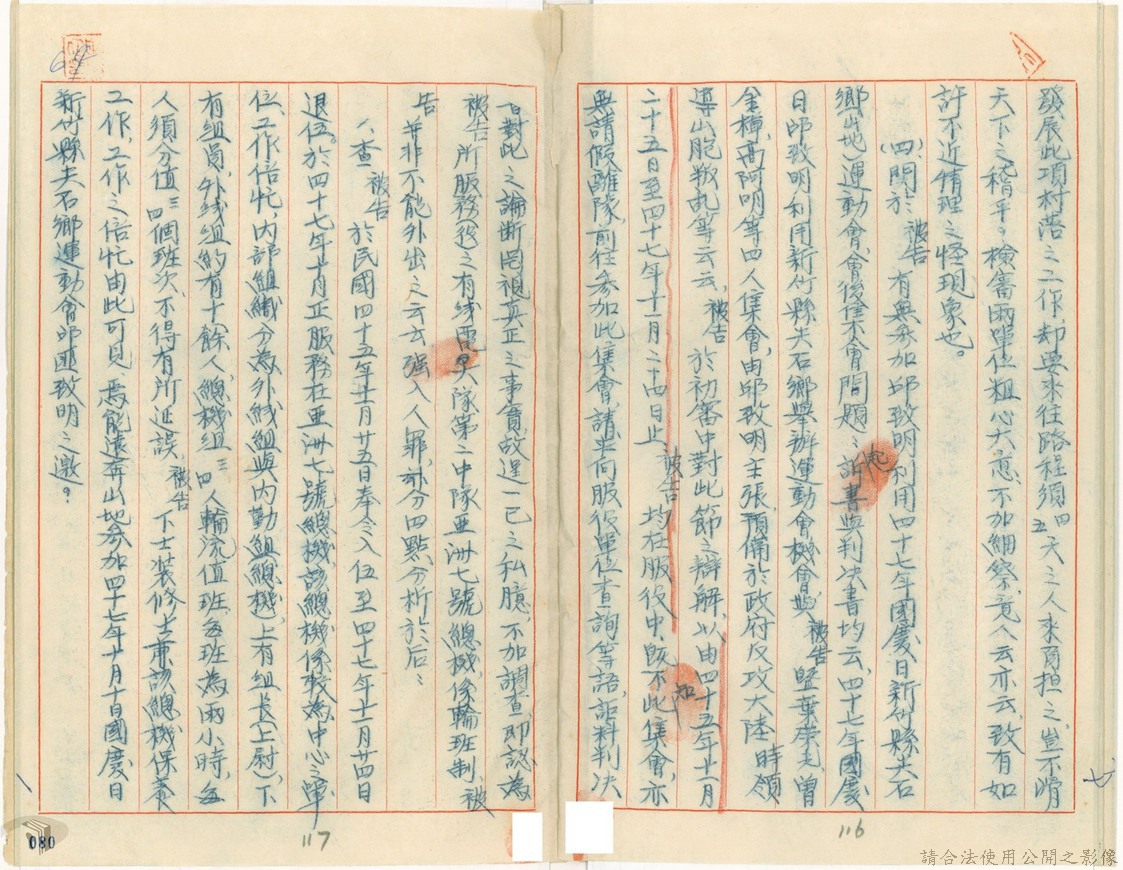 發展此項村落之工作,却要來往路程須四五天之人來負担之,豈不滑
天下之稽乎。檢審兩單位粗心大意,不加細察,竟人云亦云,致有如
許不近情理之怪現象也。
(四)、関於被告有無參加邱致明利用四十七年國慶日新竹縣尖石
鄉(山地)運動會,會後集會問題:起訴書與判決書均云,四十七年國慶
日邱致明利用新竹縣尖石鄉舉辦運動會機會與被告暨葉榮光曾
金樟高阿明等四人集會,由邱致明主張,預備於政府反攻大陸時領
導山胞叛乱等云云,被告於初審中對此節之辯解,以由四十五年十一月
二十五日至四十七年十一月二十四日止被告均在服役中,既不知此集會,亦
無請假離隊前往參加此集會,請求向服役單位查詢等語,詎料判決
書對此之論断罔視真正之事實,故逞一己之私臆,不加調查即認為
被告所服務役之有线電大隊第二中隊亞洲七號總機,係輪班制,被
告並非不能外出之云云強入人罪,茲分四點分析於后:
1、查被告於民國四十五年十一月廿五日奉令入伍至四十七年十一月廿四日
退伍。於四十七年十月正服務在亞洲七號總機,該總機係較為中心之單
位,工作倍忙,內部組織分為外线組與內勤組(總機),上有組長(上尉),下
有組員,外线組約有十餘人,總機組三四人輪流值班,每班為兩小時,每
人須分值三四個班次,不得有所延誤,被告下士装修士兼該總機保養
工作,工作之倍忙由此可見,焉能遠奔山地參加四十七年十月十日國慶日
新竹縣尖石鄉運動會邱匪致明之邀?
117
116
080
請合法使用公開之影像